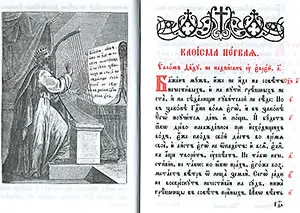 Каѳі́сма пе́рвая.
Ѱало́мъ Дв҃дꙋ, не надпи́санъ ᲂу҆ є҆врє́й,
Бл҃же́нъ мꙋ́жъ, и҆́же не и҆́де на совѣ́тъ
нечести́выхъ, и҆ на пꙋтѝ грѣ́шныхъ не
ста̀, и҆ на сѣда́лищи гꙋби́телей не сѣ́де: Но въ
зако́нѣ гдⷭ҇ни во́лѧ є҆гѡ̀, и҆ въ зако́нѣ
є҆гѡ̀ поꙋчи́тсѧ де́нь и҆ но́щь. И҆ бꙋ́детъ
ꙗ҆́кѡ дре́во насажде́ное при и҆схо́дищихъ
во́дъ, є҆́же пло́дъ сво́й да́стъ во вре́мѧ
своѐ, и҆ ли́стъ є҆гѡ̀ не ѿпаде́тъ: и҆ всѧ̑, є҆ли̑ка
а҆́ще твори́тъ, ᲂу҆спѣ́етъ. Не та́кѡ нече-
сти́вїи, не та́кѡ: но ꙗ҆́кѡ пра́хъ, є҆го́же воз-
мета́етъ вѣ́тръ ѿ лица̀ землѝ. Сегѡ̀ ра́ди
не воскре́снꙋтъ нечести́вїи на сꙋ́дъ, нижѐ